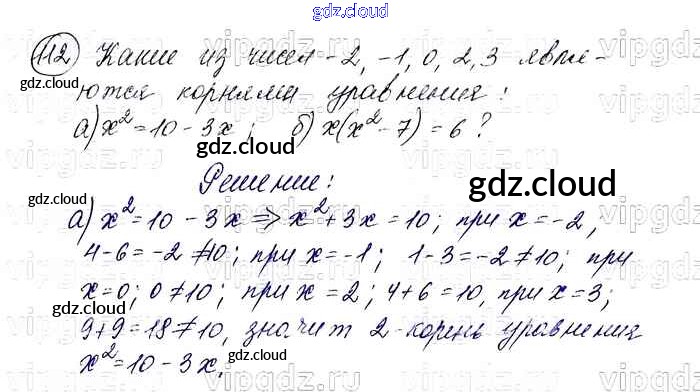 gdz.cloud
112 Какие из чисел -2, -1, 0, 2, 3 явля-
ются корнями уравнения:
а) x² = 10 - 3x; б) x(x² - 7) = 6?
gdz.cloud
gdz.cloud
gdz.cloud
Решение:
gdz.cloud
а) x² = 10 - 3x => x² + 3x = 10; при x = -2,
4-6 = -2 ≠ 10; при x = -1; 1-3 = -2 ≠ 10; при
x = 0; 0 ≠ 10; при x = 2; 4+6 = 10, при x = 3;
gdz.cloud
9+9 = 18 ≠ 10, значит 2-корень уравнения
x² = 10 - 3x.
gdz.cloud